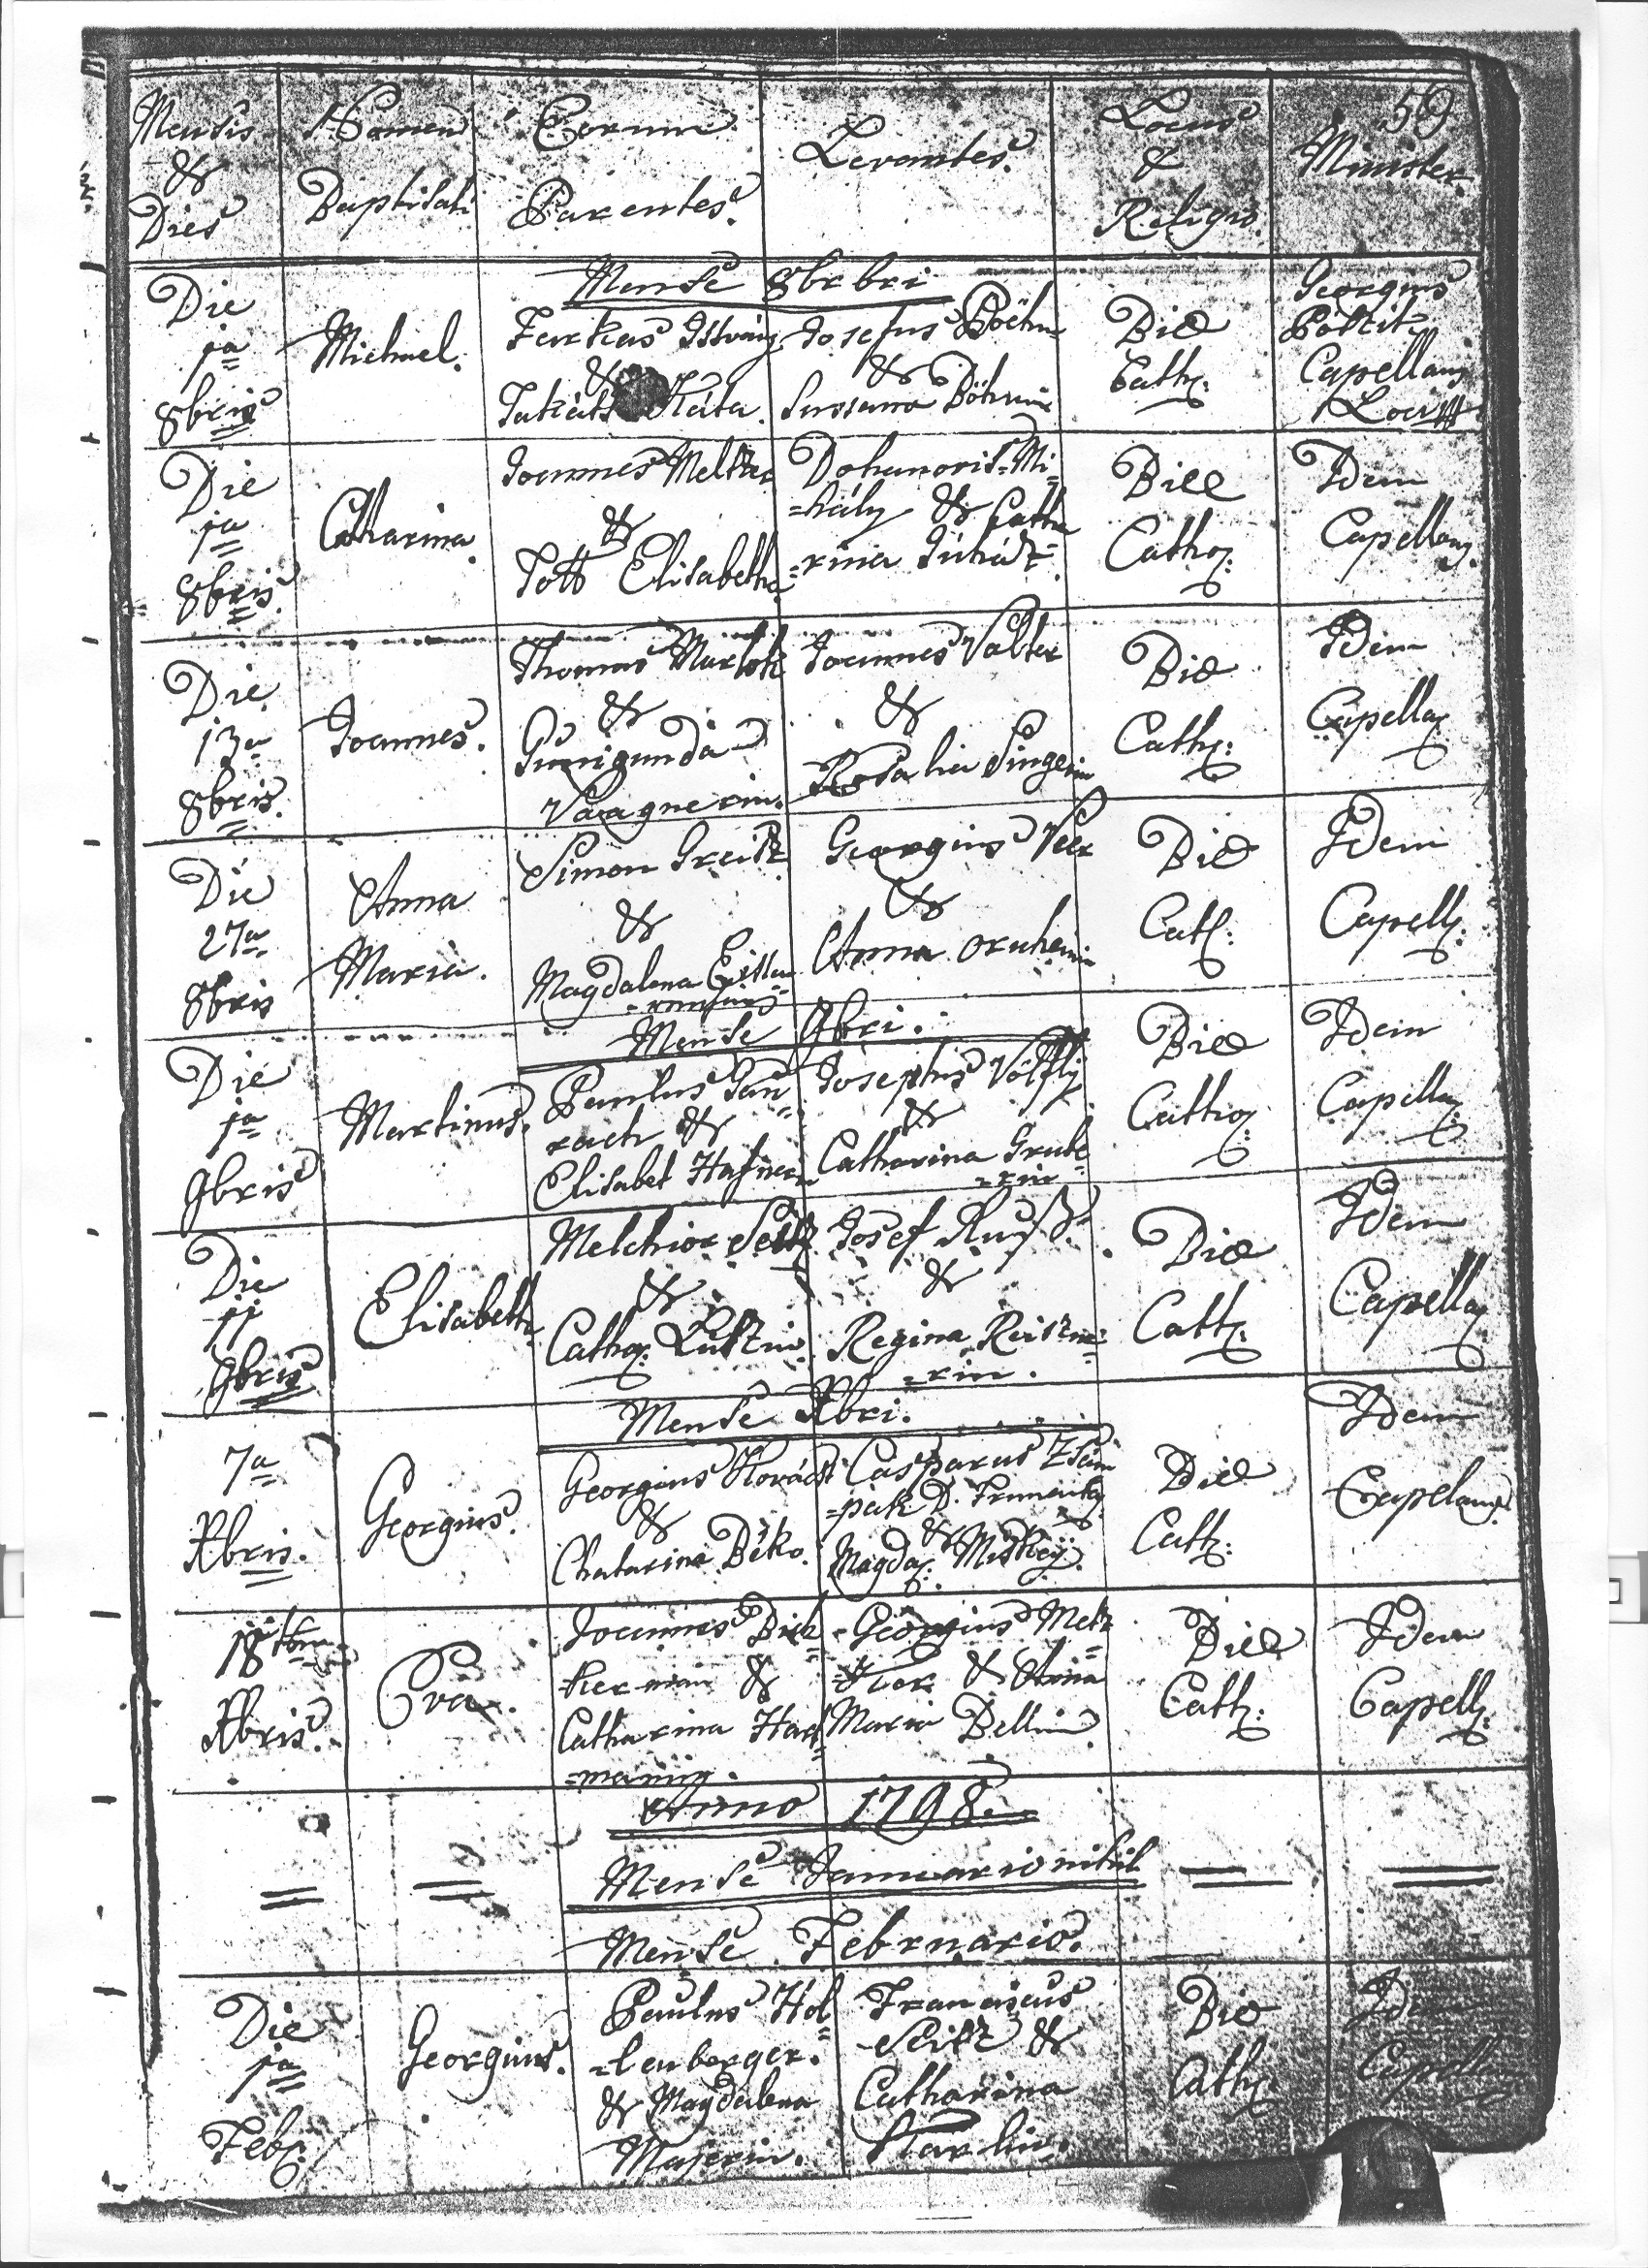 Mensis & Dies
Nomen Baptisati
Eorum Parentes.
Levantes.
Locus & Religio.
59
Minister.
Mense 8brbri
Die 1a 8bris
Michael.
Farkas Istvány
& Takáts Káta.
Josefus Böhm
& Susanna Böhmin
Bill
Cath:
Georgius
Capellang
Loci
Die 1a 8bris.
Catharina.
Joannes Meltzer
&
Tott Elisabetha
Mi=
=hály & Catha
=rina Juhász.
Bill
Cathoz:
Idem
Capellang.
Die 13a 8bris.
Joannes.
Thomas
&
Gunigunda
Vaagnerin.
Joannes Valter
&
Rosalia Singerin
Bill
Cath:
Idem
Capellaz
Die 27a 8bris
Anna
Maria.
Simon Greitz
&
Magdalena
Georgius Veer
&
Anna
Bill
Cath:
Idem
Capell:
Mense 9bri.
Die 1a 9bris
Martinus.
Paulus Gan=
rach &
Elisabet Hafnerin
Josephus Völfly
&
Catharina Grube
=rin
Bill
Cathoz:
Idem
Capellaz
Die 11 9bris
Elisabeth.
Melchior Seitz
&
Cathoz: Lutzin.
Josef Ruß.
&
Regina Reitzne=
=rin.
Bill
Cath:
Idem
Capellaz
Mense Xbri.
7a
Xbris.
Georgius.
Georgius Kovács
&
Chatarina Béko.
Casparus
=pak D.
&
Magdaz: Miskey.
Bill
Cath:
Idem
Capelang
18
Xbris.
Eva.
Joannes Bich
kerman &
Catharina Hart=
=manin.
Georgius Meltz
&
Maria Bellin
Bill
Cath:
Idem
Capell:
Anno 1798.
Mense Januario nihil
Mense Februario.
Die 1a Feb:
Georgius.
Paulus Hol=
=lenberger.
& Magdalena
Majerin.
Franciscus
Seitz &
Catharina
Starkin.
Bill
Cath:
Idem
Capellaz